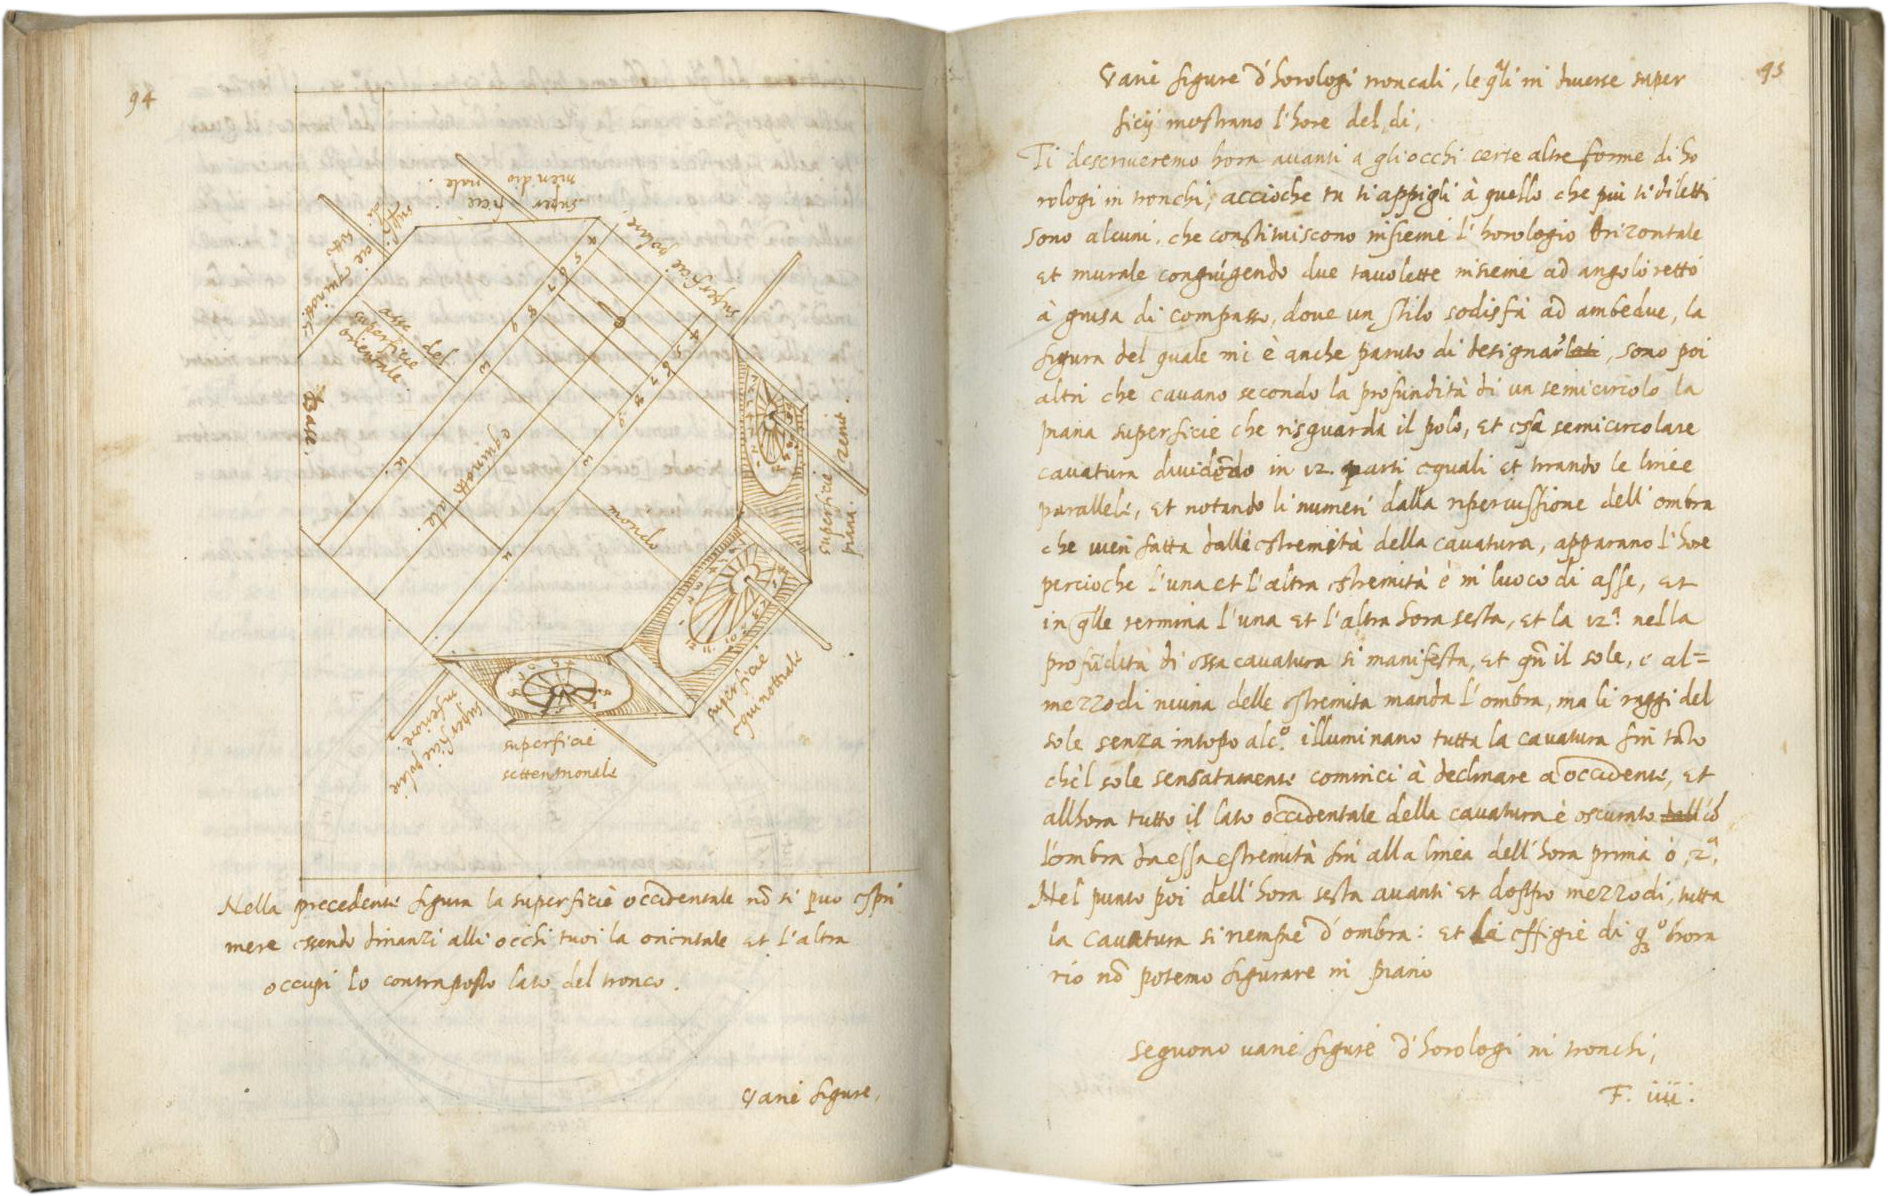 94
super
ficie
meridio
nale.
superficie polare
superficie sotto
equinottiale
asse del
superficie
orientale.
Base.
equinottiale.
mondo
superficie /zenit.
piana.
superficie
equinottiale
superficie
settentrionale
superficie polare
inferiore.
4 5 6 7 8 9 10 11
4 5 6 7 8 9 10 11
Nella precedente figura la superficie occidentale nō si puo espri
mere essendo dinanzi alli occhi tuoi la orientale et l'altra
occupi lo contraposto lato del tronco.
Varie figure,
95
Varie figure d'horologi troncali, le q̄li in diverse super
ficij mostrano l'hore del di,
Ti descriveremo hora avanti a gli occhi certe altre forme di ho
rologi in tronchi, accioche tu ti appigli à quello che piu ti diletti
sono alcuni, che constituiscono insieme l'horologio Orizontale
et murale congiūgendo due tavolette insieme ad angolo retto
à guisa di compasso, dove un stilo sodisfà ad ambedue, la
figura del quale mi è anche paruto di designar, sono poi
altri che cavano secondo la profundità di un semicircolo la
piana superficie che risguarda il polo, et essa semicircolare
cavatura dividēdo in 12. parti equali et tirando le linee
parallele, et notando li numeri dalla ripercussione dell'ombra
che vien fatta dalle estremità della cavatura, apparano l'hore
percioche l'una et l'altra estremità è in luoco di asse, et
in q̄lle termina l'una et l'altra hora sesta, et la 12ª. nella
profūdita di essa cavatura si manifesta, et qn̄ il sole, è al=
mezzodi niuna delle estremita manda l'ombra, ma li raggi del
sole senza intopo alc.º illuminano tutta la cavatura fin tāto
che'l sole sensatamente cominci à declinare a occidente, et
allhora tutto il lato occidentale della cavatura è oscurato cō
l'ombra da essa estremità fin alla linea dell'hora prima ò, 2ª.
Nel punto poi dell'hora sesta avanti et doppo mezzodi, tutta
la cavatura si riempie d'ombra: et la effigie di q̄sº hora
rio nō potemo figurare in piano
Seguono varie figure d'horologi in tronchi,
F. iiii.